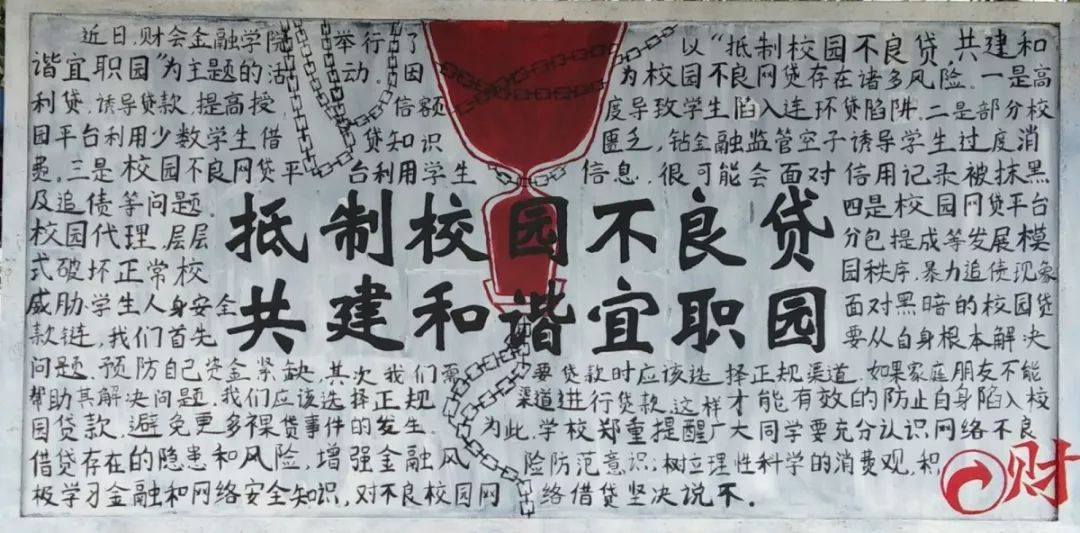 近日,财会金融学院举行了以“抵制校园不良贷,共建和
谐宜职园”为主题的活动,因为校园不良网贷存在诸多风险。一是高
利贷,诱导贷款,提高授信额度导致学生陷入连环贷陷阱.二是部分校
园平台利用少数学生借贷知识匮乏,钻金融监管空子诱导学生过度消
费.三是校园不良网贷平台利用学生信息,很可能会面对信用记录被抹黑
及追债等问题.四是校园网贷平台
校园代理,层层分包提成等发展模
式破坏正常校园秩序.暴力追债现象
威胁学生人身安全面对黑暗的校园贷
款链,我们首先要从自身根本解决
抵制校园不良贷
共建和谐宜职园
问题,预防自己资金紧缺,其次我们需要贷款时应该选择正规渠道,如果家庭朋友不能
帮助其解决问题,我们应该选择正规渠道进行贷款,这样才能有效的防止自身陷入校
园贷款,避免更多裸贷事件的发生.为此,学校郑重提醒广大同学要充分认识网络不良
借贷存在的隐患和风险,增强金融风险防范意识;树立理性科学的消费观,积
极学习金融和网络安全知识,对不良校园网络借贷坚决说不.
财